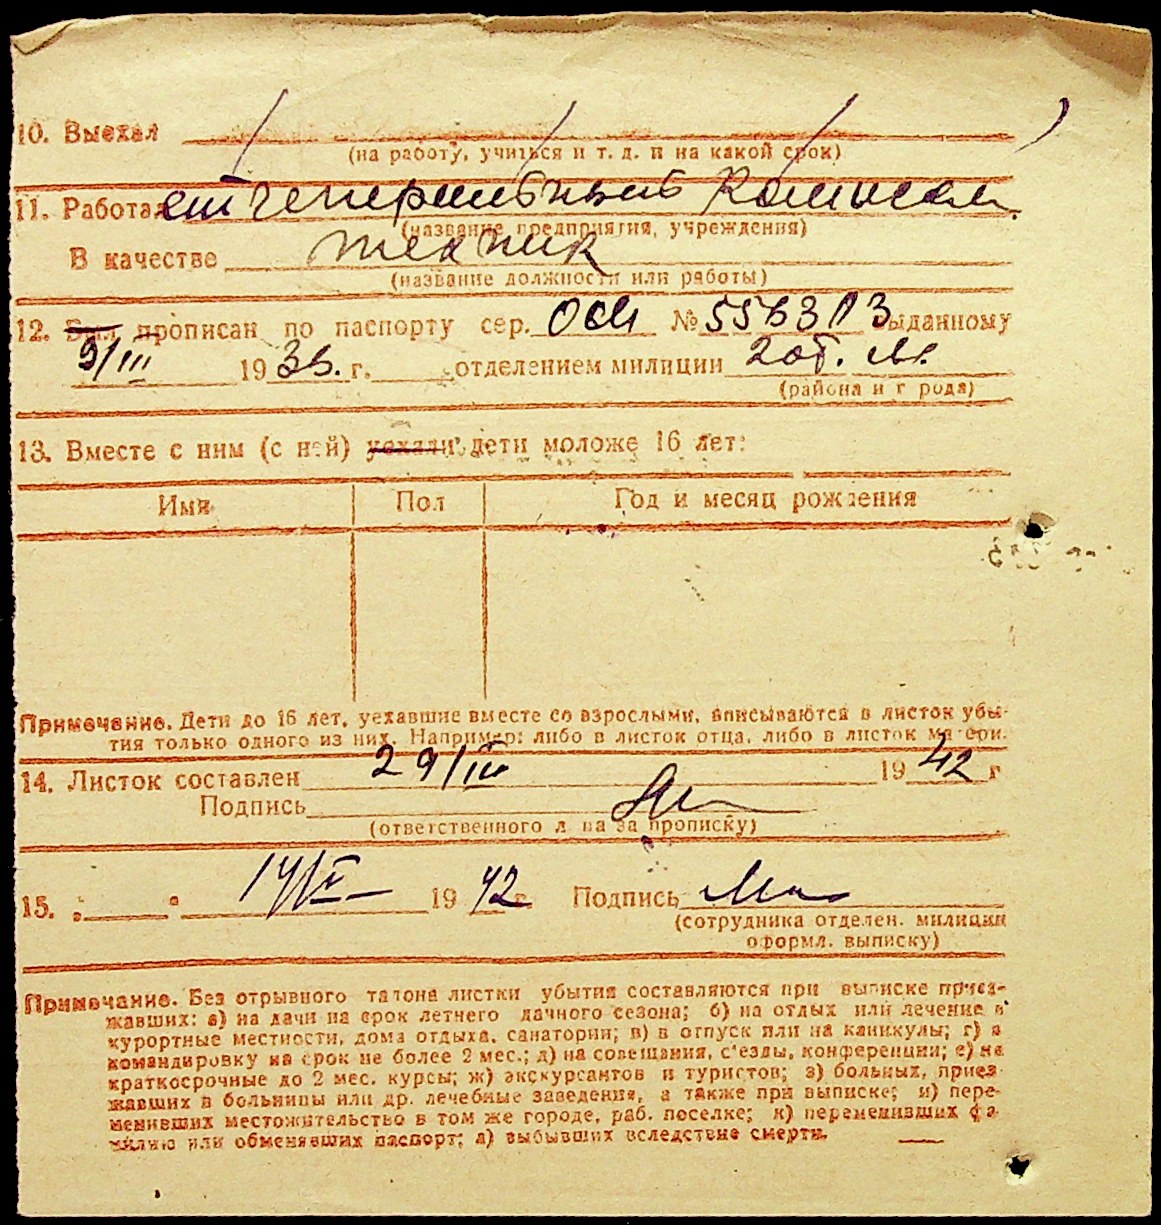 10. Выехал
(на работу, учиться и т. д. и на какой срок)
11. Работал
(название предприятия, учреждения)
В качестве техник
(название должности или работы)
12. Был прописан по паспорту сер. № выданному
9/III 19 г. отделением милиции
(района и города)
13. Вместе с ним (с ней) уехали дети моложе 16 лет:
Имя Пол Год и месяц рождения
Примечание. Дети до 16 лет, уехавшие вместе со взрослыми, вписываются в листок убы-
тия только одного из них. Например: либо в листок отца, либо в листок матери.
14. Листок составлен 29/III 1942 г
Подпись
(ответственного лица за прописку)
15. 1942 г. Подпись
(сотрудника отделен. милиции
оформл. выписку)
Примечание. Без отрывного талона листки убытия составляются при выписке приез-
жавших: а) на дачи на срок летнего дачного сезона; б) на отдых или лечение в
курортные местности, дома отдыха, санатории; в) в отпуск или на каникулы; г) в
командировку на срок не более 2 мес.; д) на совещания, с'езды, конференции; е) на
краткосрочные до 2 мес. курсы; ж) экскурсантов и туристов; з) больных, приез-
жавших в больницы или др. лечебные заведения, а также при выписке; и) пере-
менивших местожительство в том же городе, раб. поселке; к) переменивших фа-
милию или обменявших паспорт; л) выбывших вследствие смерти.